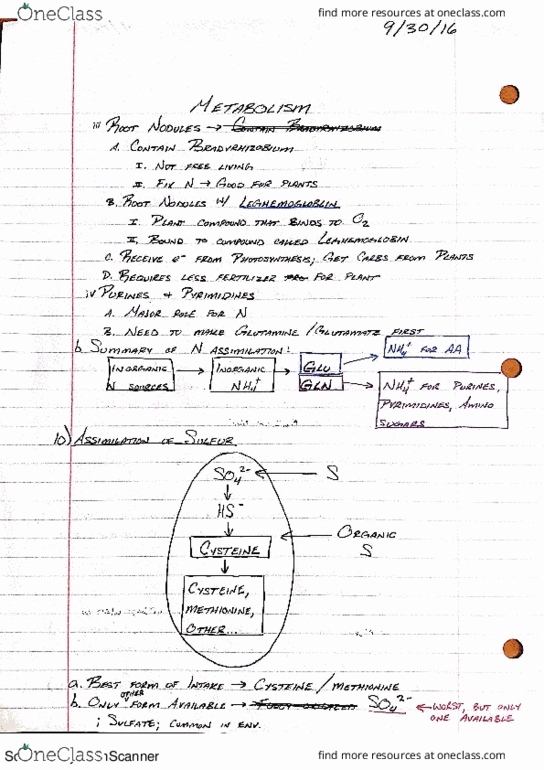 OneClass
find more resources at oneclass.com
find more resources at oneclass.com
9/30/16
METABOLISM
iii ROOT NODULES → CONTAIN BRADYRHIZOBIUM
A. CONTAIN BRADYRHIZOBIUM
I. NOT FREE LIVING
II. FIX N → GOOD FOR PLANTS
B. ROOT NODULES W/ LEGHEMOGLOBLIN
I. PLANT COMPOUND THAT BINDS TO O2
II. BOUND TO COMPOUND CALLED LEGHEMOGLOBIN
C. RECEIVE e- FROM PHOTOSYNTHESIS; GET CARBS FROM PLANTS
D. REQUIRES LESS FERTILIZER FOR PLANT
iv PURINES & PYRIMIDINES
A. MAJOR ROLE FOR N
B. NEED TO MAKE GLUTAMINE/GLUTAMATE FIRST
b. SUMMARY OF N ASSIMILATION:
INORGANIC N SOURCES → INORGANIC NH4+ → GLU → NH4+ FOR AA
GLN → NH4+ FOR PURINES,
PYRIMIDINES, AMINO
SUGARS
10) ASSIMILATION OF SULFUR
SO4 2- ← S
↓
HS-
↓
CYSTEINE ← ORGANIC S
↓
CYSTEINE,
METHIONINE,
OTHER...
a. BEST FORM OF INTAKE → CYSTEINE/METHIONINE
b. ONLY OTHER FORM AVAILABLE → SO4 2- ← WORST, BUT ONLY
ONE AVAILABLE
; SULFATE; COMMON IN ENV.
OneClass
Scanner
find more resources at oneclass.com